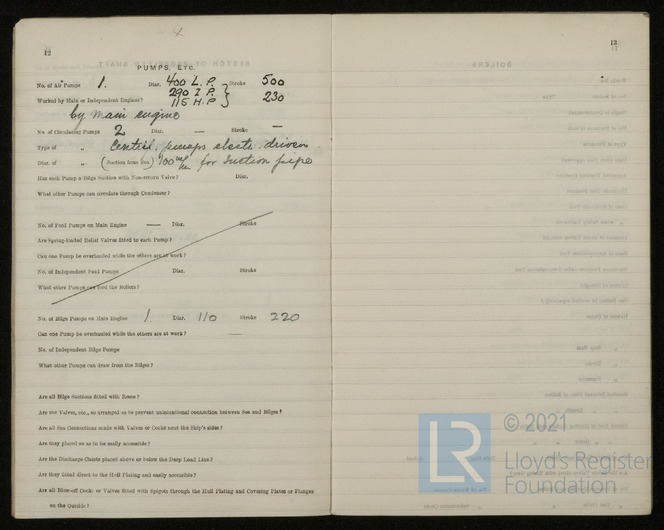 4
12
PUMPS, ETC.
No. of Air Pumps 1. Diar. 400 L.P. Stroke 500
290 I.P.
Worked by Main or Independent Engines? 115 H.P. 230
by main engine
No. of Circulating Pumps 2 Diar. — Stroke —
Type of „ Centrif. pumps electr. driven
Diar. of „ (Suction from Sea) 100 m/m for suction pipe
Has each Pump a Bilge Suction with Non-return Valve? Diar.
What other Pumps can circulate through Condenser?
No. of Feed Pumps on Main Engine — Diar. Stroke
Are Spring-loaded Relief Valves fitted to each Pump?
Can one Pump be overhauled while the others are at work?
No. of Independent Feed Pumps Diar. Stroke
What other Pumps can feed the Boilers?
No. of Bilge Pumps on Main Engine 1. Diar. 110 Stroke 220
Can one Pump be overhauled while the others are at work? —
No. of Independent Bilge Pumps
What other Pumps can draw from the Bilges?
Are all Bilge Suctions fitted with Roses?
Are the Valves, etc., so arranged as to prevent unintentional connection between Sea and Bilges?
Are all Sea Connections made with Valves or Cocks next the Ship's sides?
Are they placed so as to be easily accessible?
Are the Discharge Chests placed above or below the Deep Load Line?
Are they fitted direct to the Hull Plating and easily accessible?
Are all Blow-off Cocks or Valves fitted with Spigots through the Hull Plating and Covering Plates or Flanges
on the Outside?
13
LR
© 2021
Lloyd's Register
Foundation